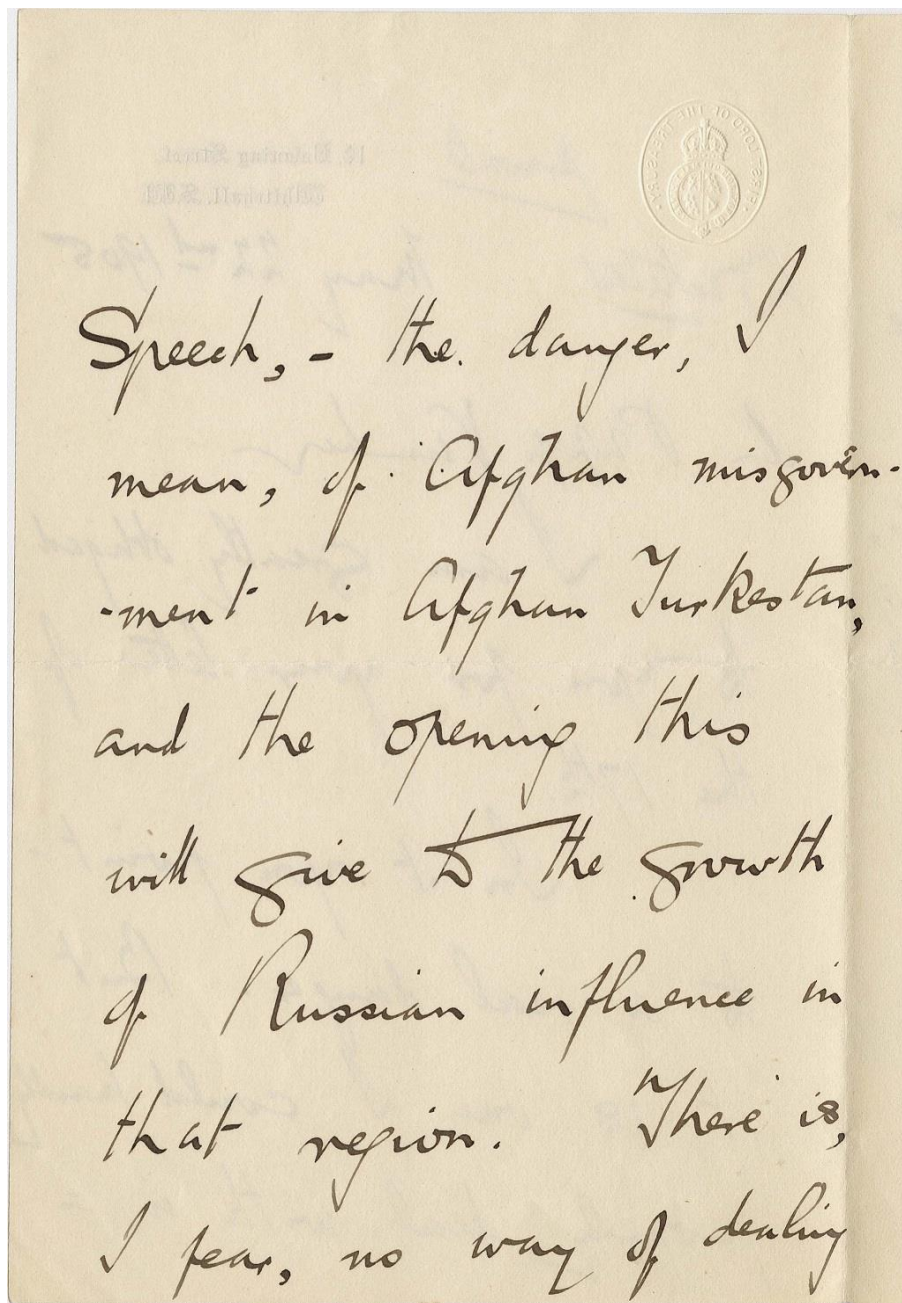 Speech, - the danger, I
mean, of Afghan misgovern-
-ment in Afghan Turkestan,
and the opening this
will give to the growth
of Russian influence in
that region. There is,
I fear, no way of dealing